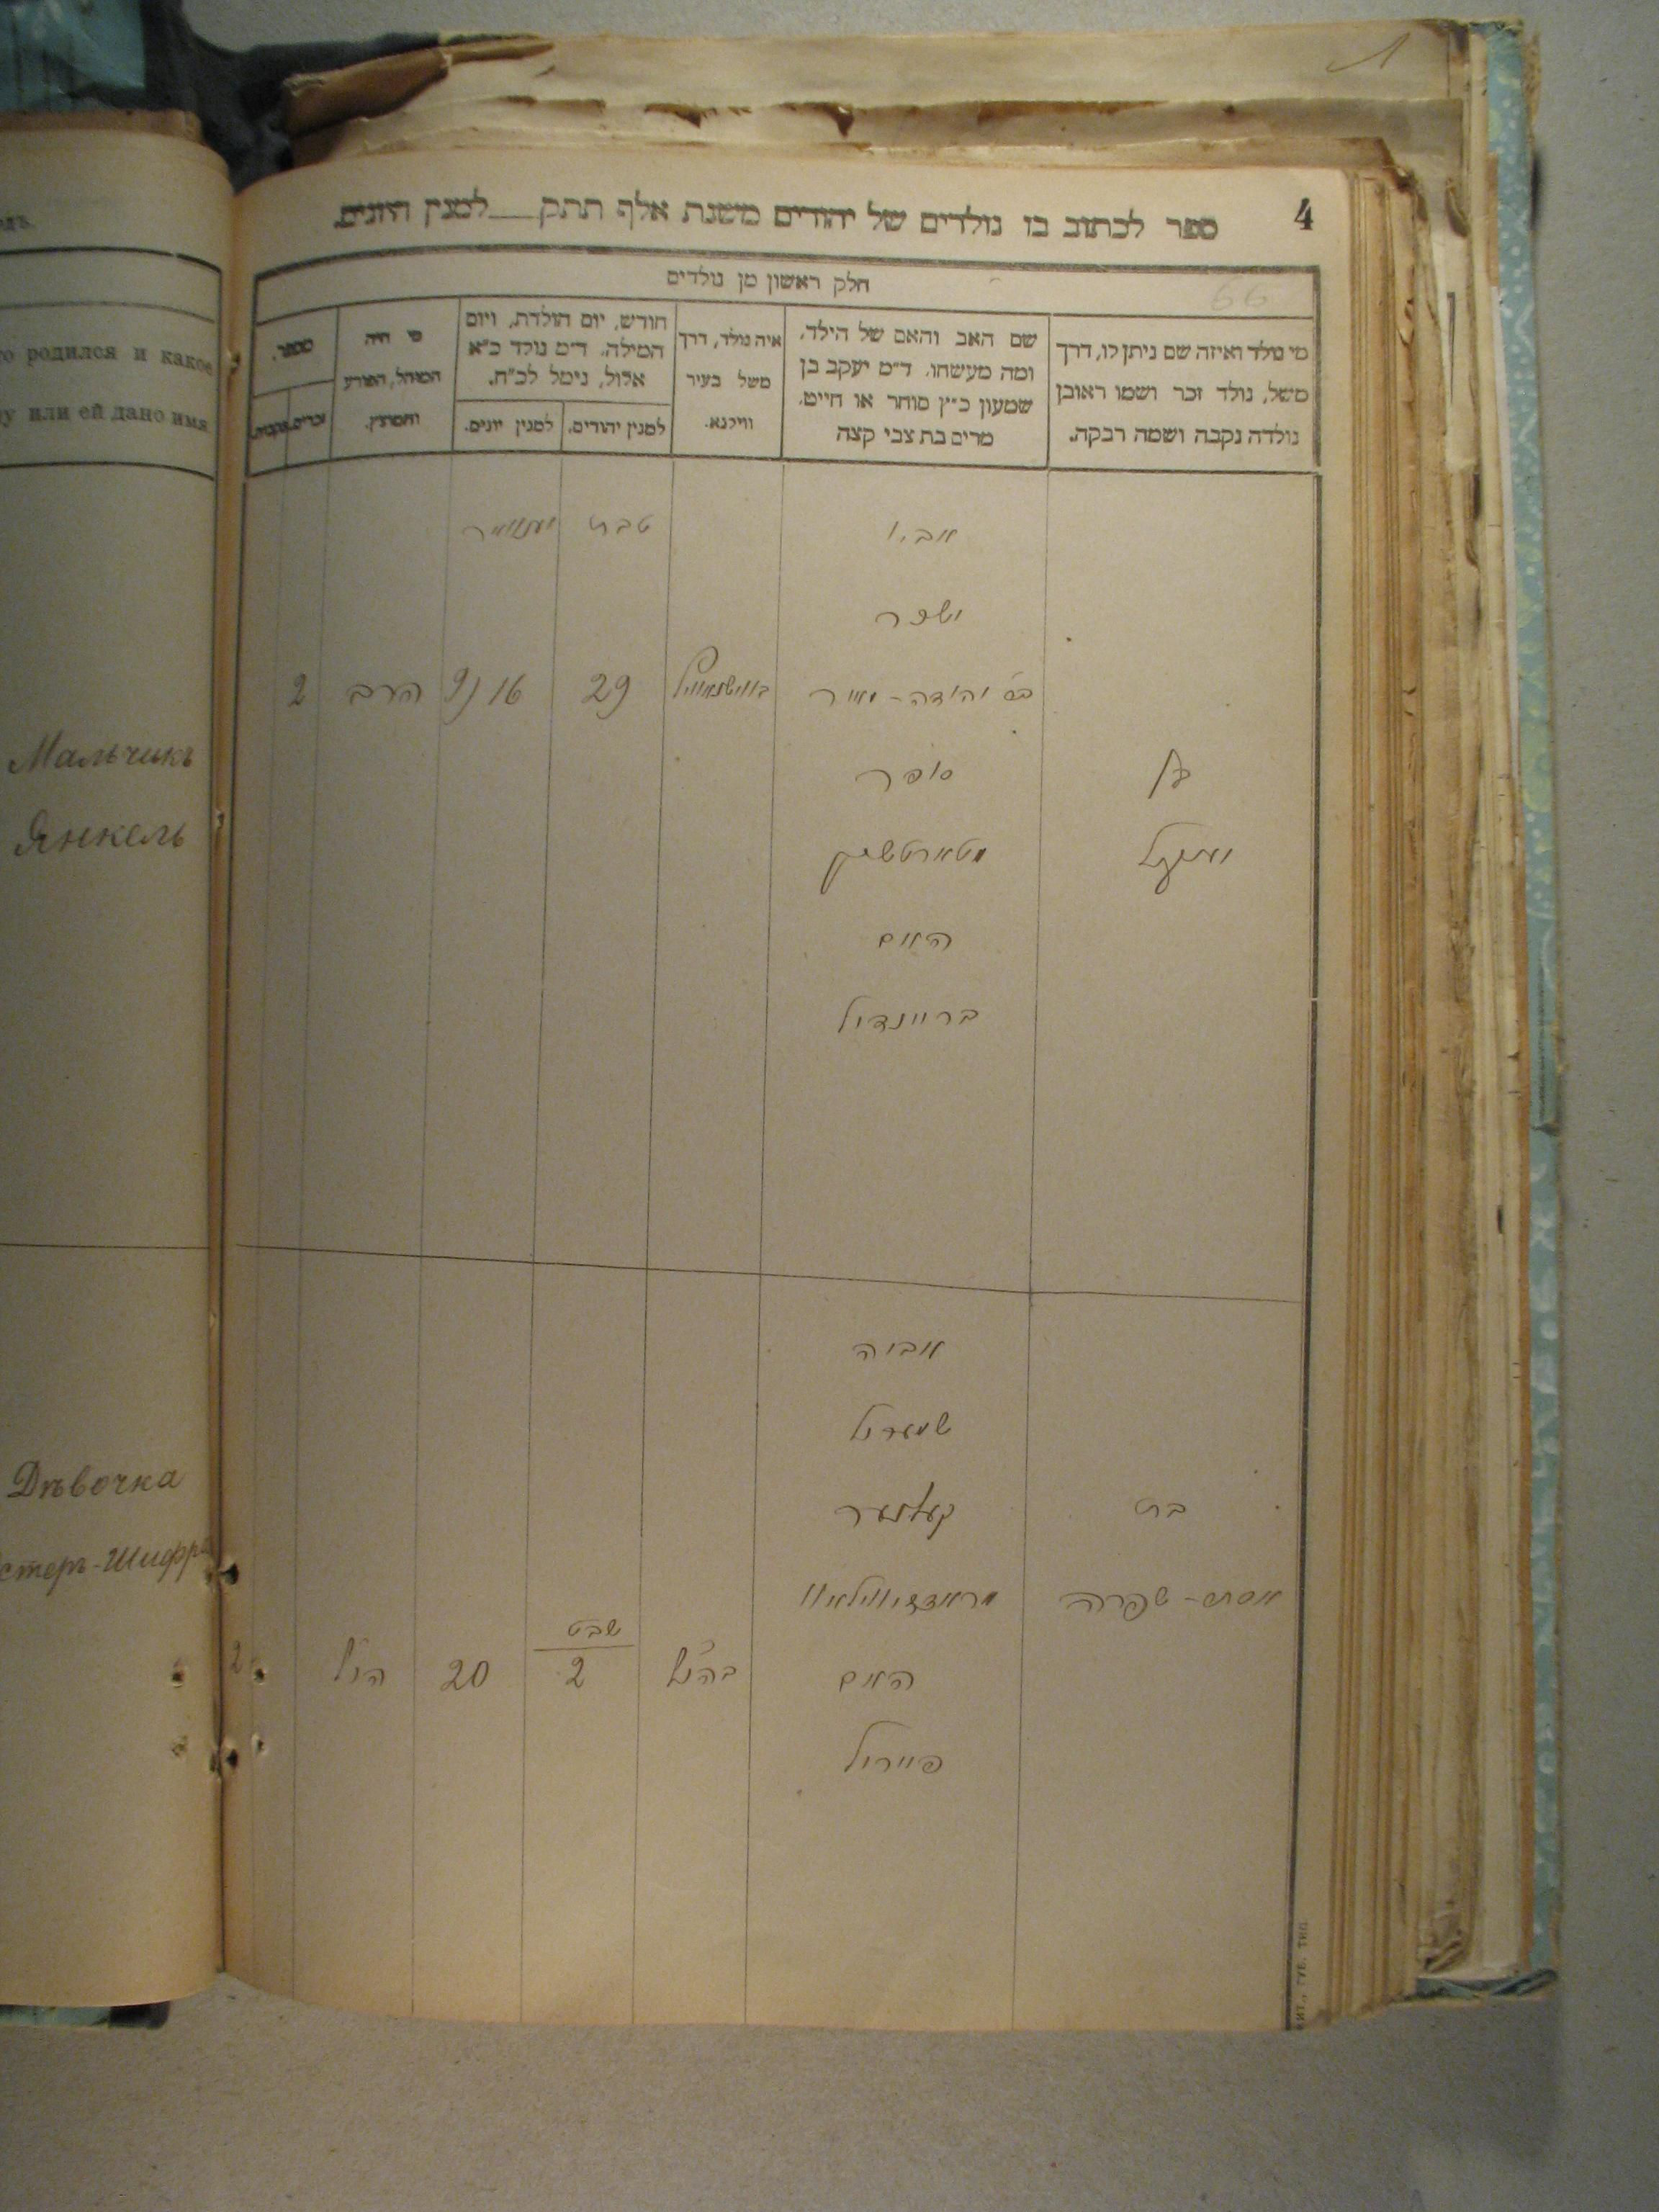 4
ספר לכתוב בו נולדים של יהודים משנת אלף תתק___למנין היונים.
חלק ראשון מן נולדים
66
מי נולד ואיזה שם ניתן לו, דרך
משל, נולד זכר ושמו ראובן
נולדה נקבה ושמה רבקה.
שם האב והאם של הילד,
ומה מעשהו. ד״מ יעקב בן
שמעון כ״ץ סוחר או חייט,
מרים בת צבי קצה
איה נולד, דרך
משל בעיר
ווילנא.
חודש, יום הולדת, ויום
המילה. ד״מ נולד כ״א
אלול, נימל לכ״ח.
למנין יהודים.
למנין יונים.
מי היה
המוהל, הפורע
והמוצץ.
מספר.
זכרים.
נקבות.
אביו
טבת
יענוואר
ישכר
ב״ר יהודה-מאיר
29
16 / 9
הרב
2
סופר
בן
יאנקל
האם
בריינדיל
אביה
שמעריל
בת
אסתר-שפרה
האם
שבט
2
20
הנ״ל
2
פייריל
го родился и какое
у или ей дано имя
Мальчикъ
Янкель
Дѣвочка
стеръ-Шифра
ЖИТ., ГУБ. ТИП.